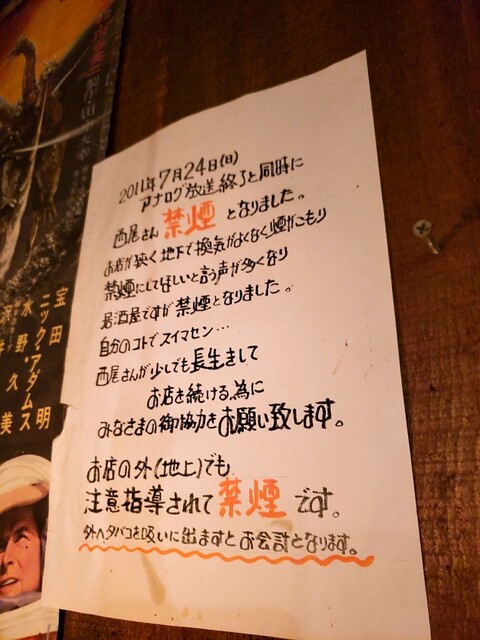 2011年7月24日(日)
アナログ放送終了と同時に
西尾さん 禁煙 となりました。
お店が狭く地下で換気がよくなく煙がこもり
禁煙にしてほしいと言う声が多くなり
居酒屋ですが禁煙となりました。
自分のコトでスイマセン…
西尾さんが少しでも長生きして
お店を続ける為に
みなさまの御協力をお願い致します。
お店の外(地上)でも
注意指導されて禁煙です。
外へタバコを吸いに出ますとお会計となります。
宝田 明
ニック・アダムス
水野久美